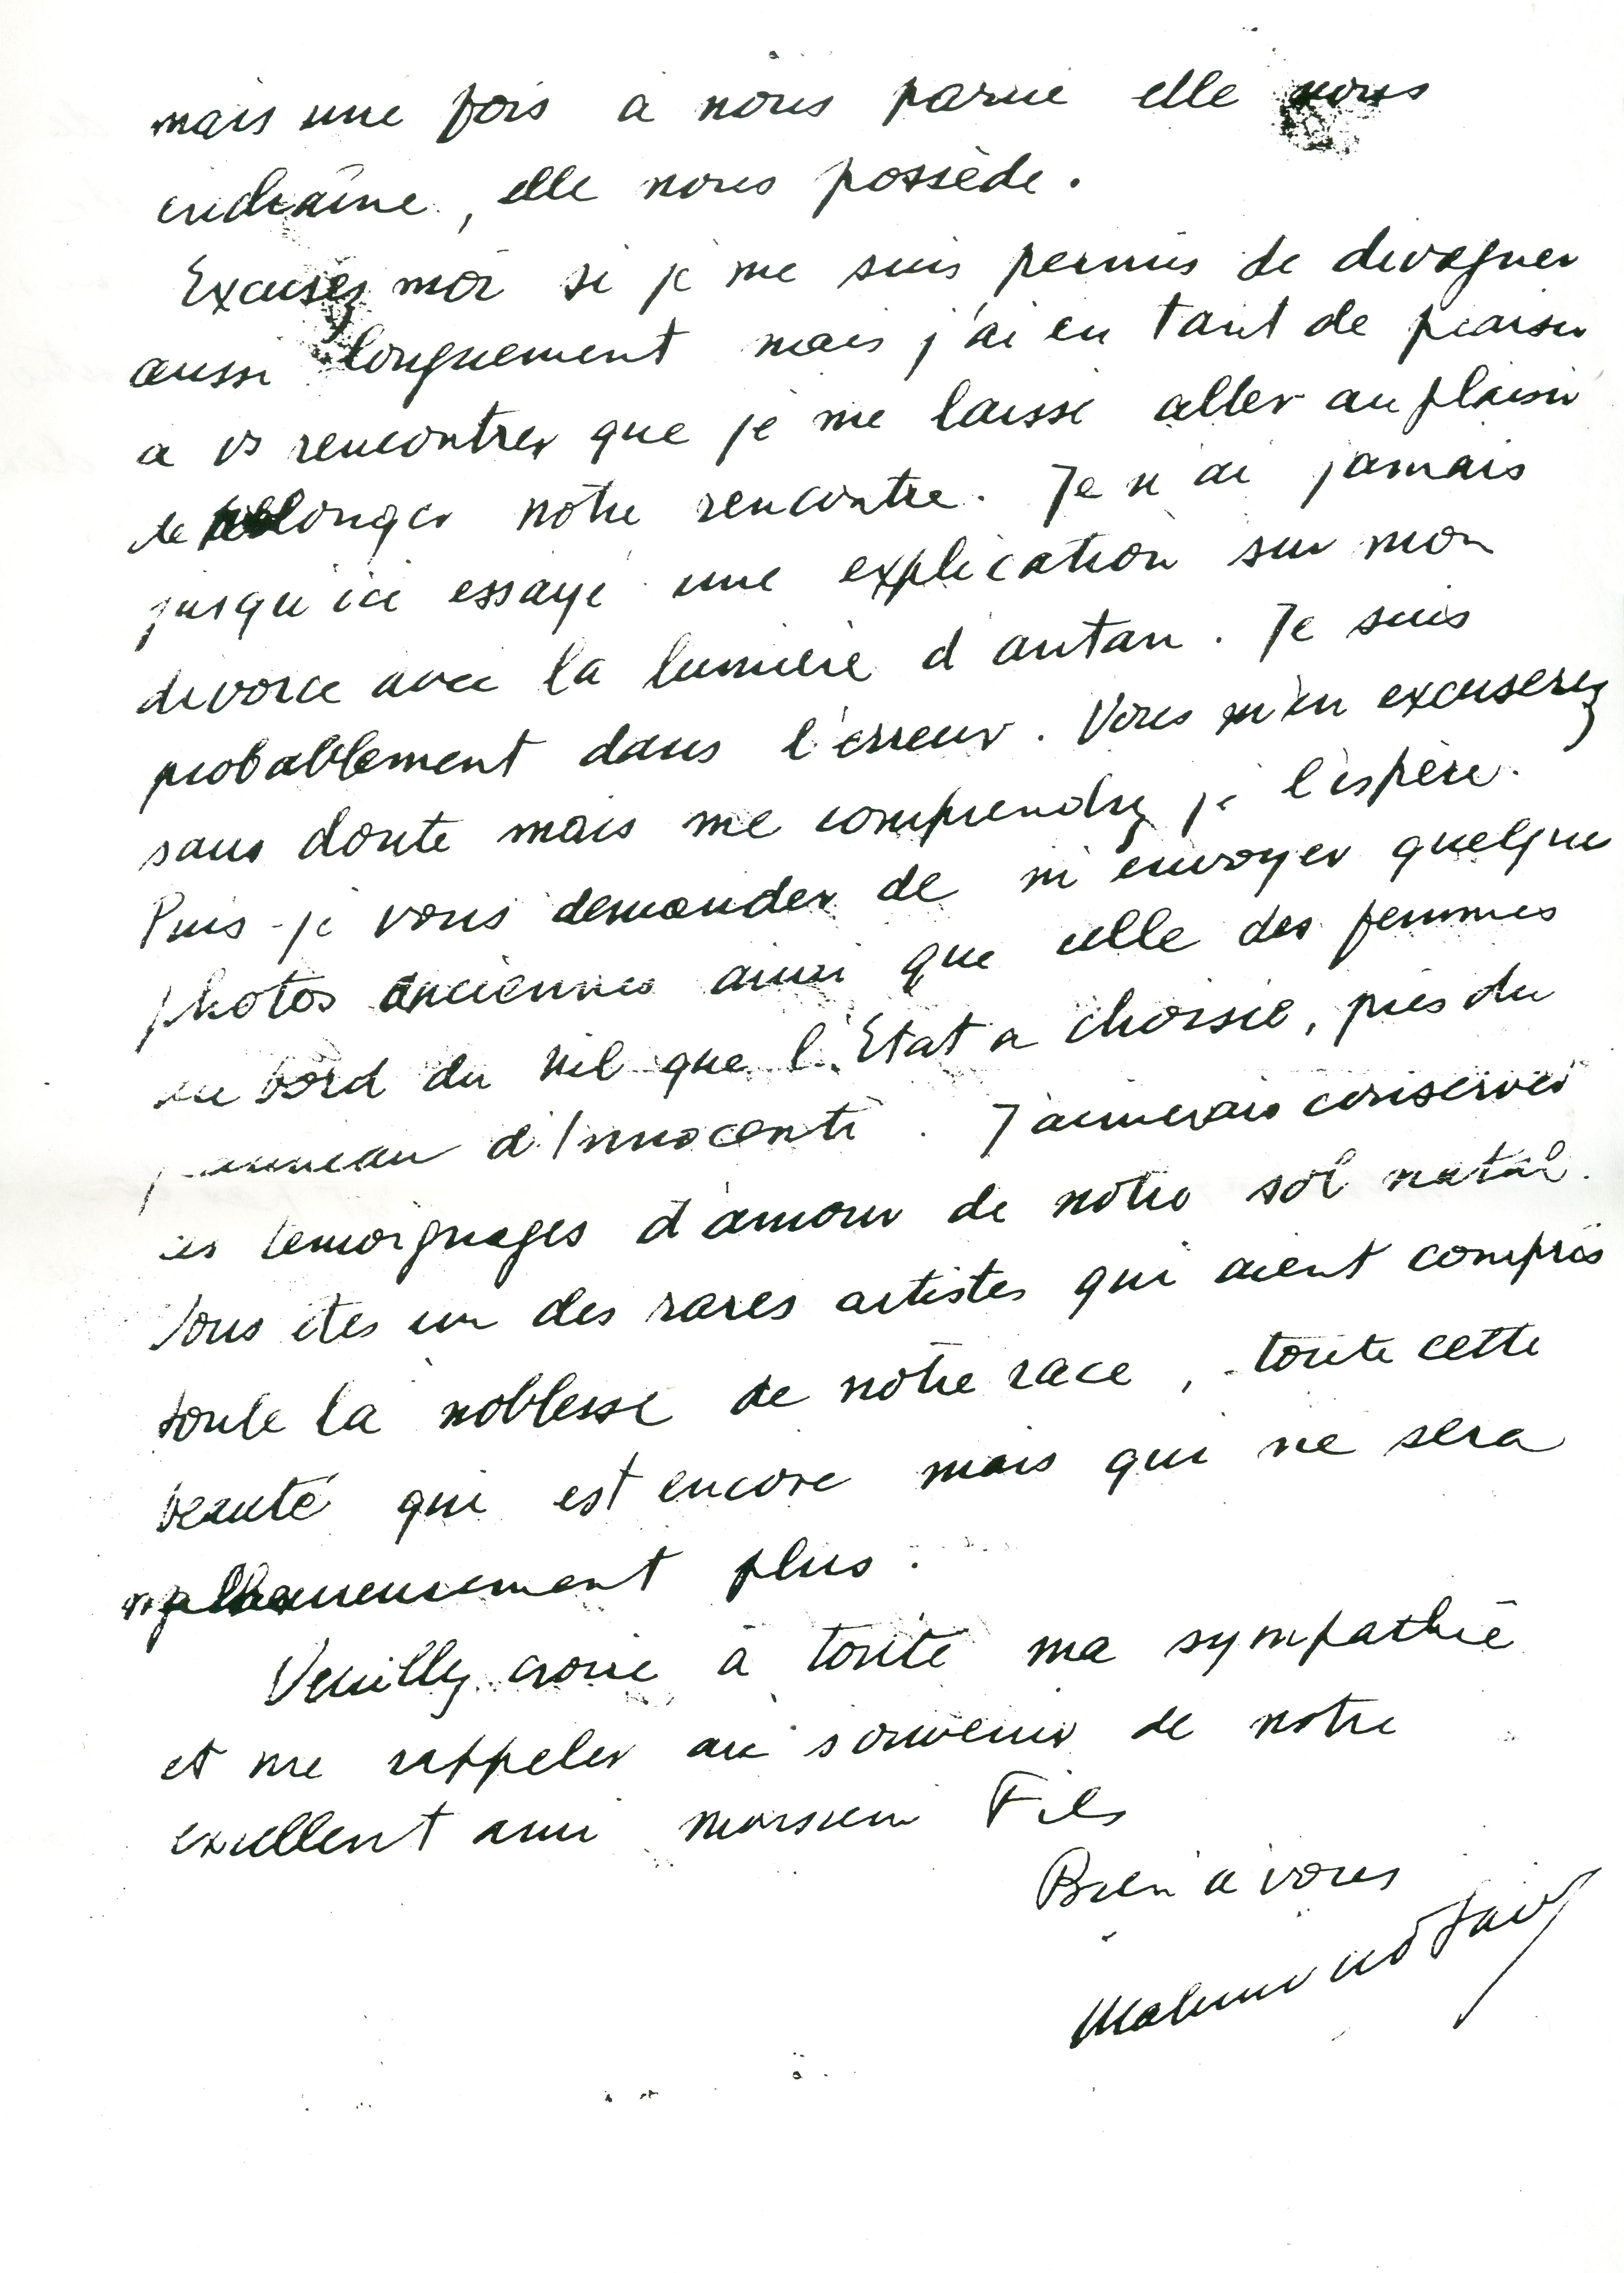 mais une fois a nous parue elle nous
enchaîne, elle nous possède.
Excusez moi si je me suis permis de divaguer
aussi longuement mais j'ai eu tant de plaisir
a vs rencontrer que je me laisse aller au plaisir
de longer notre rencontre. Je n'ai jamais
jusqu'ici essayé une explication sur mon
divorce avec la lumière d'antan. Je suis
probablement dans l'erreur. Vous m'en excuserez
sans doute mais me comprendrez je l'espère.
Puis-je vous demander de m'envoyer quelque
photos anciennes ainsi que celle des femmes
au bord du Nil que l'Etat a choisie, près du
panneau d'Innocenti. J'aimerais conserver
ces temoignages d'amour de notre sol natal.
Vous êtes un des rares artistes qui aient compris
toute la noblesse de notre race, toute cette
beauté qui est encore mais qui ne sera
malheureusement plus.
Veuillez croire à toute ma sympathie
et me rappeler au souvenir de notre
excellent ami monsieur Fils
Bien a vous
Mahmoud Saïd